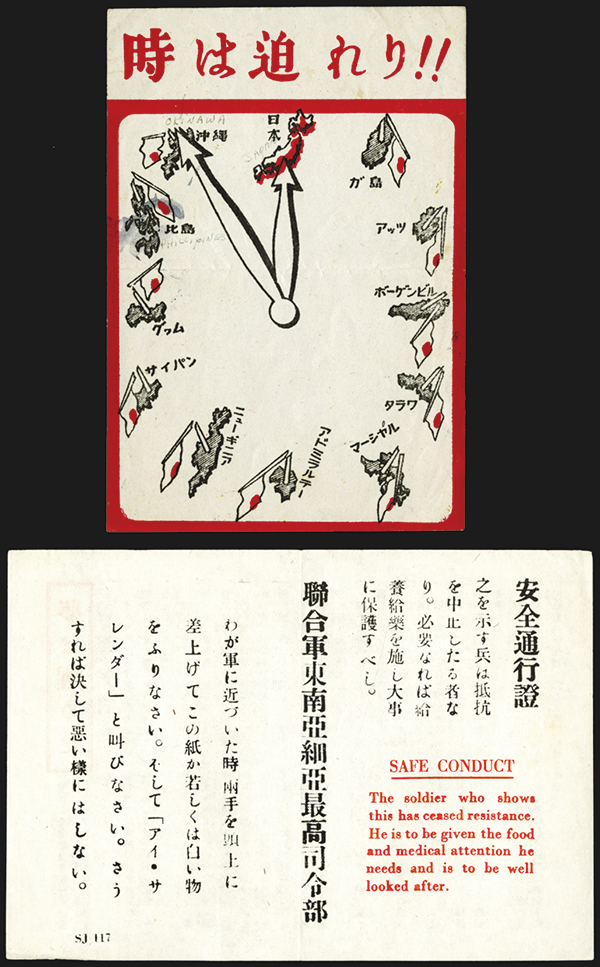 時は迫れり!!
OKINAWA
沖縄
日本
JAPAN
ガ島
アッツ
ボーゲンビル
タラワ
マーシャル
アドミラルテー
ニューギニア
サイパン
グヮム
比島
安全通行證
之を示す兵は抵抗
を中止したる者な
り。必要なれば給
養給藥を施し大事
に保護すべし。
SAFE CONDUCT
The soldier who shows
this has ceased resistance.
He is to be given the food
and medical attention he
needs and is to be well
looked after.
聯合軍東南亞細亞最高司令部
わが軍に近づいた時兩手を頭上に
差上げてこの紙か若しくは白い物
をふりなさい。そして「アイ・サ
レンダー」と叫びなさい。さう
すれば決して悪い樣にはしない。
SJ 117